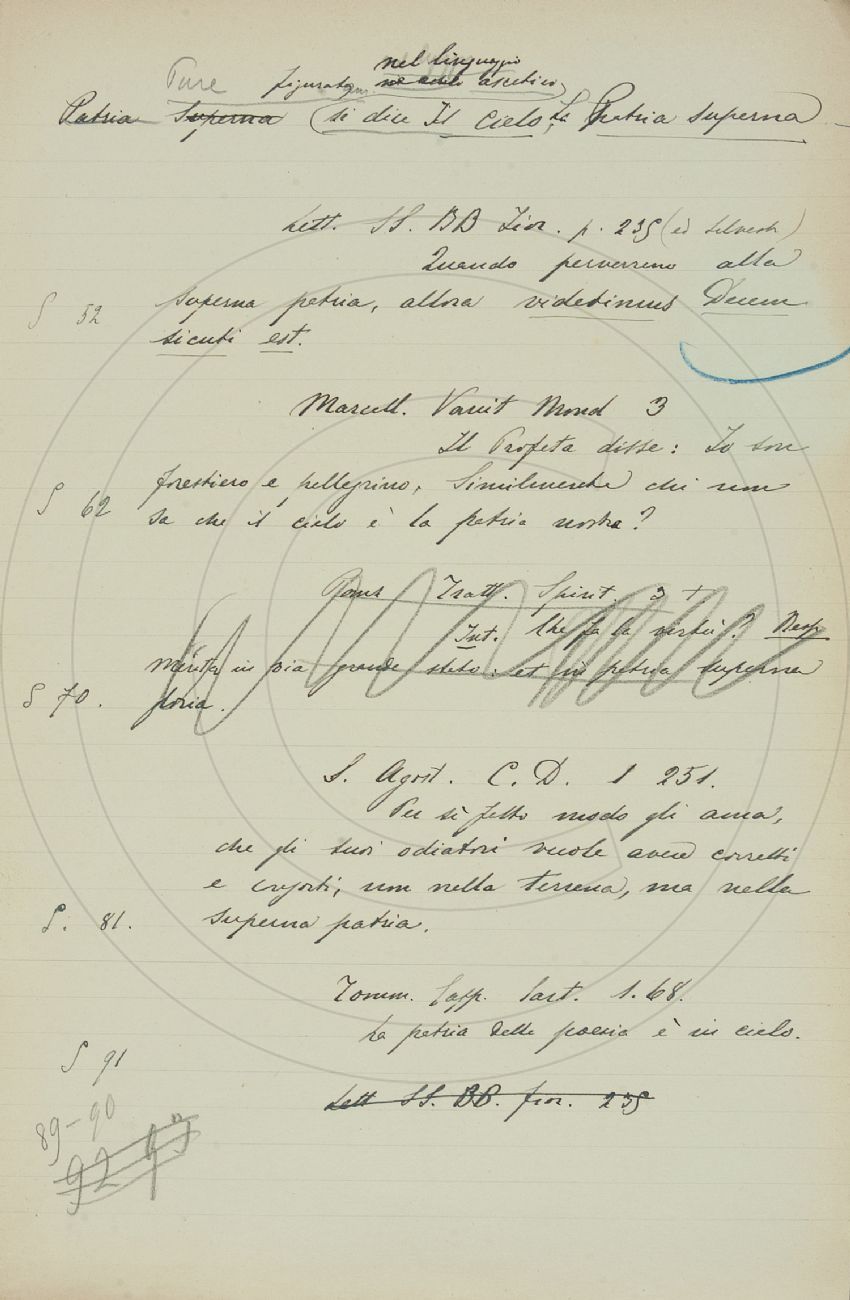 nel linguaggio
Pure figurata ascetico,
Patria Superna (si dice Il Cielo, La Patria superna)
Lett. SS. BB Fior. p. 235 (ed Silvestri)
Quando perverremo alla
S 52 superna patria, allora videbimus Deum
sicuti est.
Marcell. Vanit Mond 3
Il Profeta disse: Io son
forestiero e pellegrino, Similmente chi non
S 62 sa che il cielo è la patria nostra?
Tratt. Spirit. 3 +
Int. Che fa la virtù? Resp
merita in via grande stato: et in patria superna
S 70. gloria.
S. Agost. C. D. 1 251.
Per sì fatto modo gli ama,
che gli suoi odiatori vuole avere corretti
e, non nella terrena, ma nella
S. 81. superna patria.
Tomm. Capp. Sart. 1.68.
La patria della poesia è in cielo.
S 91
Lett SS. BB. fior. 235
89-90
92 93